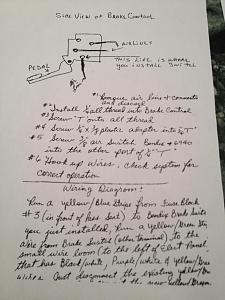 Side View of Brake Control
Air Lines
This Line is where
you install switch
Pedal
#1 Remove air lines & connectors
and discard
#2 Install 1/4" all thread into Brake Control
#3 Screw "T" onto all thread
#4 Screw 1/4 x 1/8 plastic adapter into "T"
#5 Screw air switch Bendix # 6940
into the other port of 1/4" "T"
#6 Hook up wires. Check system for
correct operation
Wiring Diagram:
Run a yellow/Blue stripe from Fuse Block
#3 (in front of pass seat) to Bendix Brake Switch
you just installed, Run a yellow/Green stripe
wire from Brake Switch (other terminal) to the
small wire loom (to the left of Dart Panel
that has Black/white, Purple/white & yellow/Brown
wires. Just disconnect the existing yellow/
the new yellow/Brown